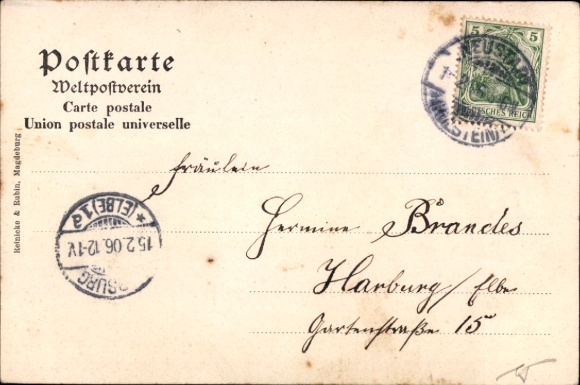 Postkarte
Weltpostverein
Carte postale
Union postale universelle
5 5
NEUSTADT
(HOLSTEIN)
DEUTSCHES REICH
Fräulein
Hermine Brandes
Harburg/Elbe
Gartenstraße 15
(ELBE) 1a
15.2.06.12-1V
Reinicke & Rubin, Magdeburg